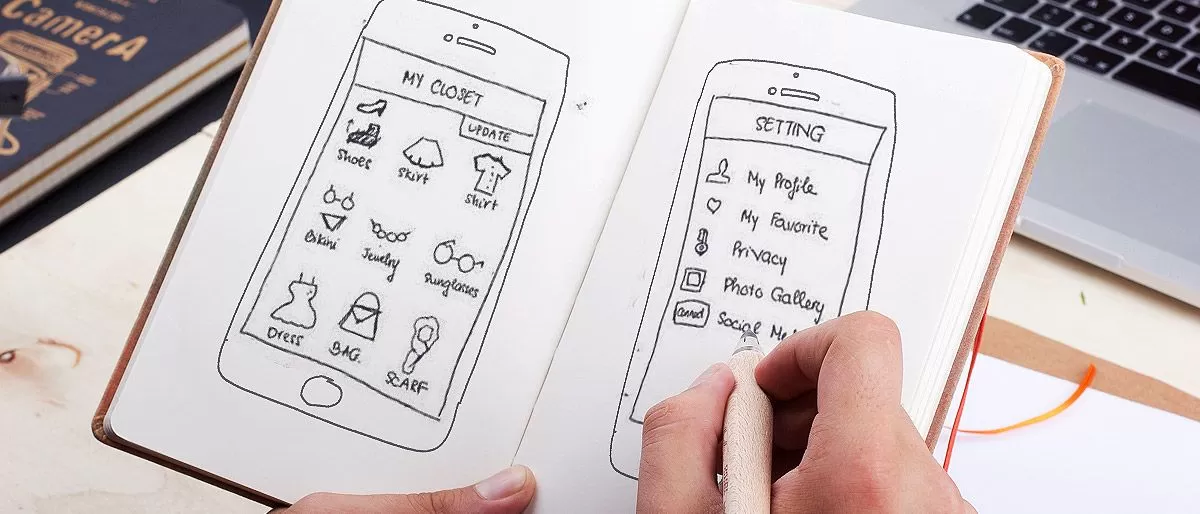 CamerA
MY CLOSET
UPDATE
Shoes
Skirt
Shirt
Bikini
Jewelry
Sunglasses
Dress
BAG.
SCARF
SETTING
My Profile
My Favorite
Privacy
Photo Gallery
Social Me